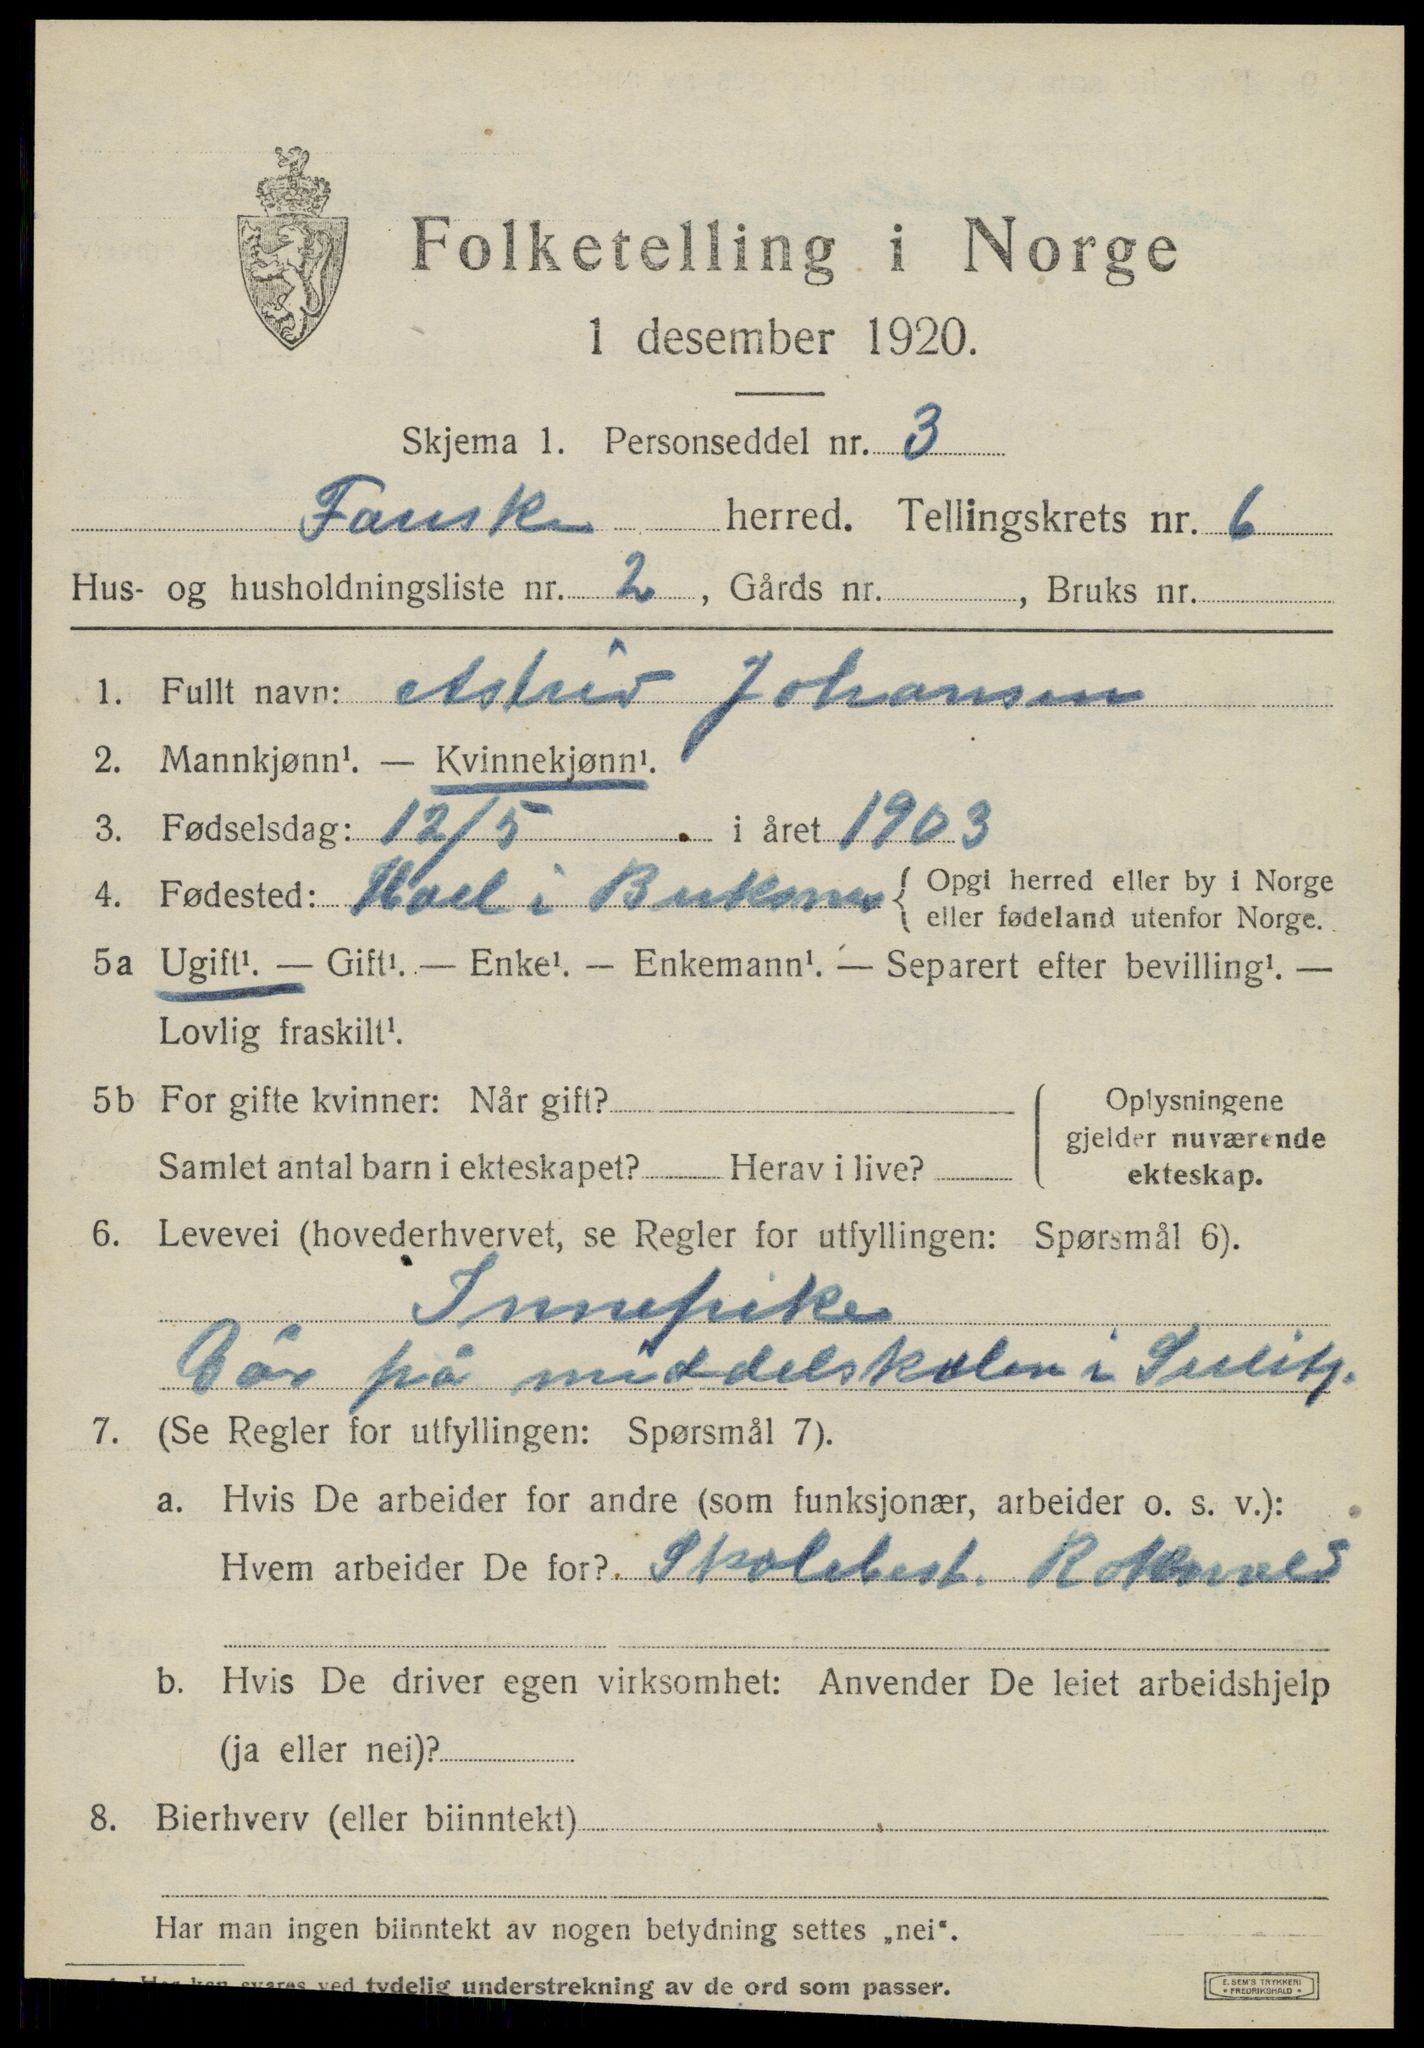 Folketelling i Norge
1 desember 1920.
Skjema 1. Personseddel nr. 3
Fauske herred. Tellingskrets nr. 6
Hus- og husholdningsliste nr. 2, Gårds nr. , Bruks nr.
1. Fullt navn: Astrid Johansen
2. Mannkjønn¹. — Kvinnekjønn¹.
3. Fødselsdag: 12/5 i året 1903
4. Fødested: Hoel i Buksnes { Opgi herred eller by i Norge
eller fødeland utenfor Norge.
5a Ugift¹. — Gift¹. — Enke¹. — Enkemann¹. — Separert efter bevilling¹. —
Lovlig fraskilt¹.
5b For gifte kvinner: Når gift?
Samlet antal barn i ekteskapet? Herav i live?
Oplysningene
gjelder nuværende
ekteskap.
6. Levevei (hovederhvervet, se Regler for utfyllingen: Spørsmål 6).
Innepike
Går på middelskolen i Sulitj.
7. (Se Regler for utfyllingen: Spørsmål 7).
a. Hvis De arbeider for andre (som funksjonær, arbeider o. s. v.):
Hvem arbeider De for? Skolebest.
b. Hvis De driver egen virksomhet: Anvender De leiet arbeidshjelp
(ja eller nei)?
8. Bierhverv (eller biinntekt)
Har man ingen biinntekt av nogen betydning settes „nei“.
svares ved tydelig understrekning av de ord som passer.
E. SEM'S TRYKKERI
* FREDRIKSHALD *